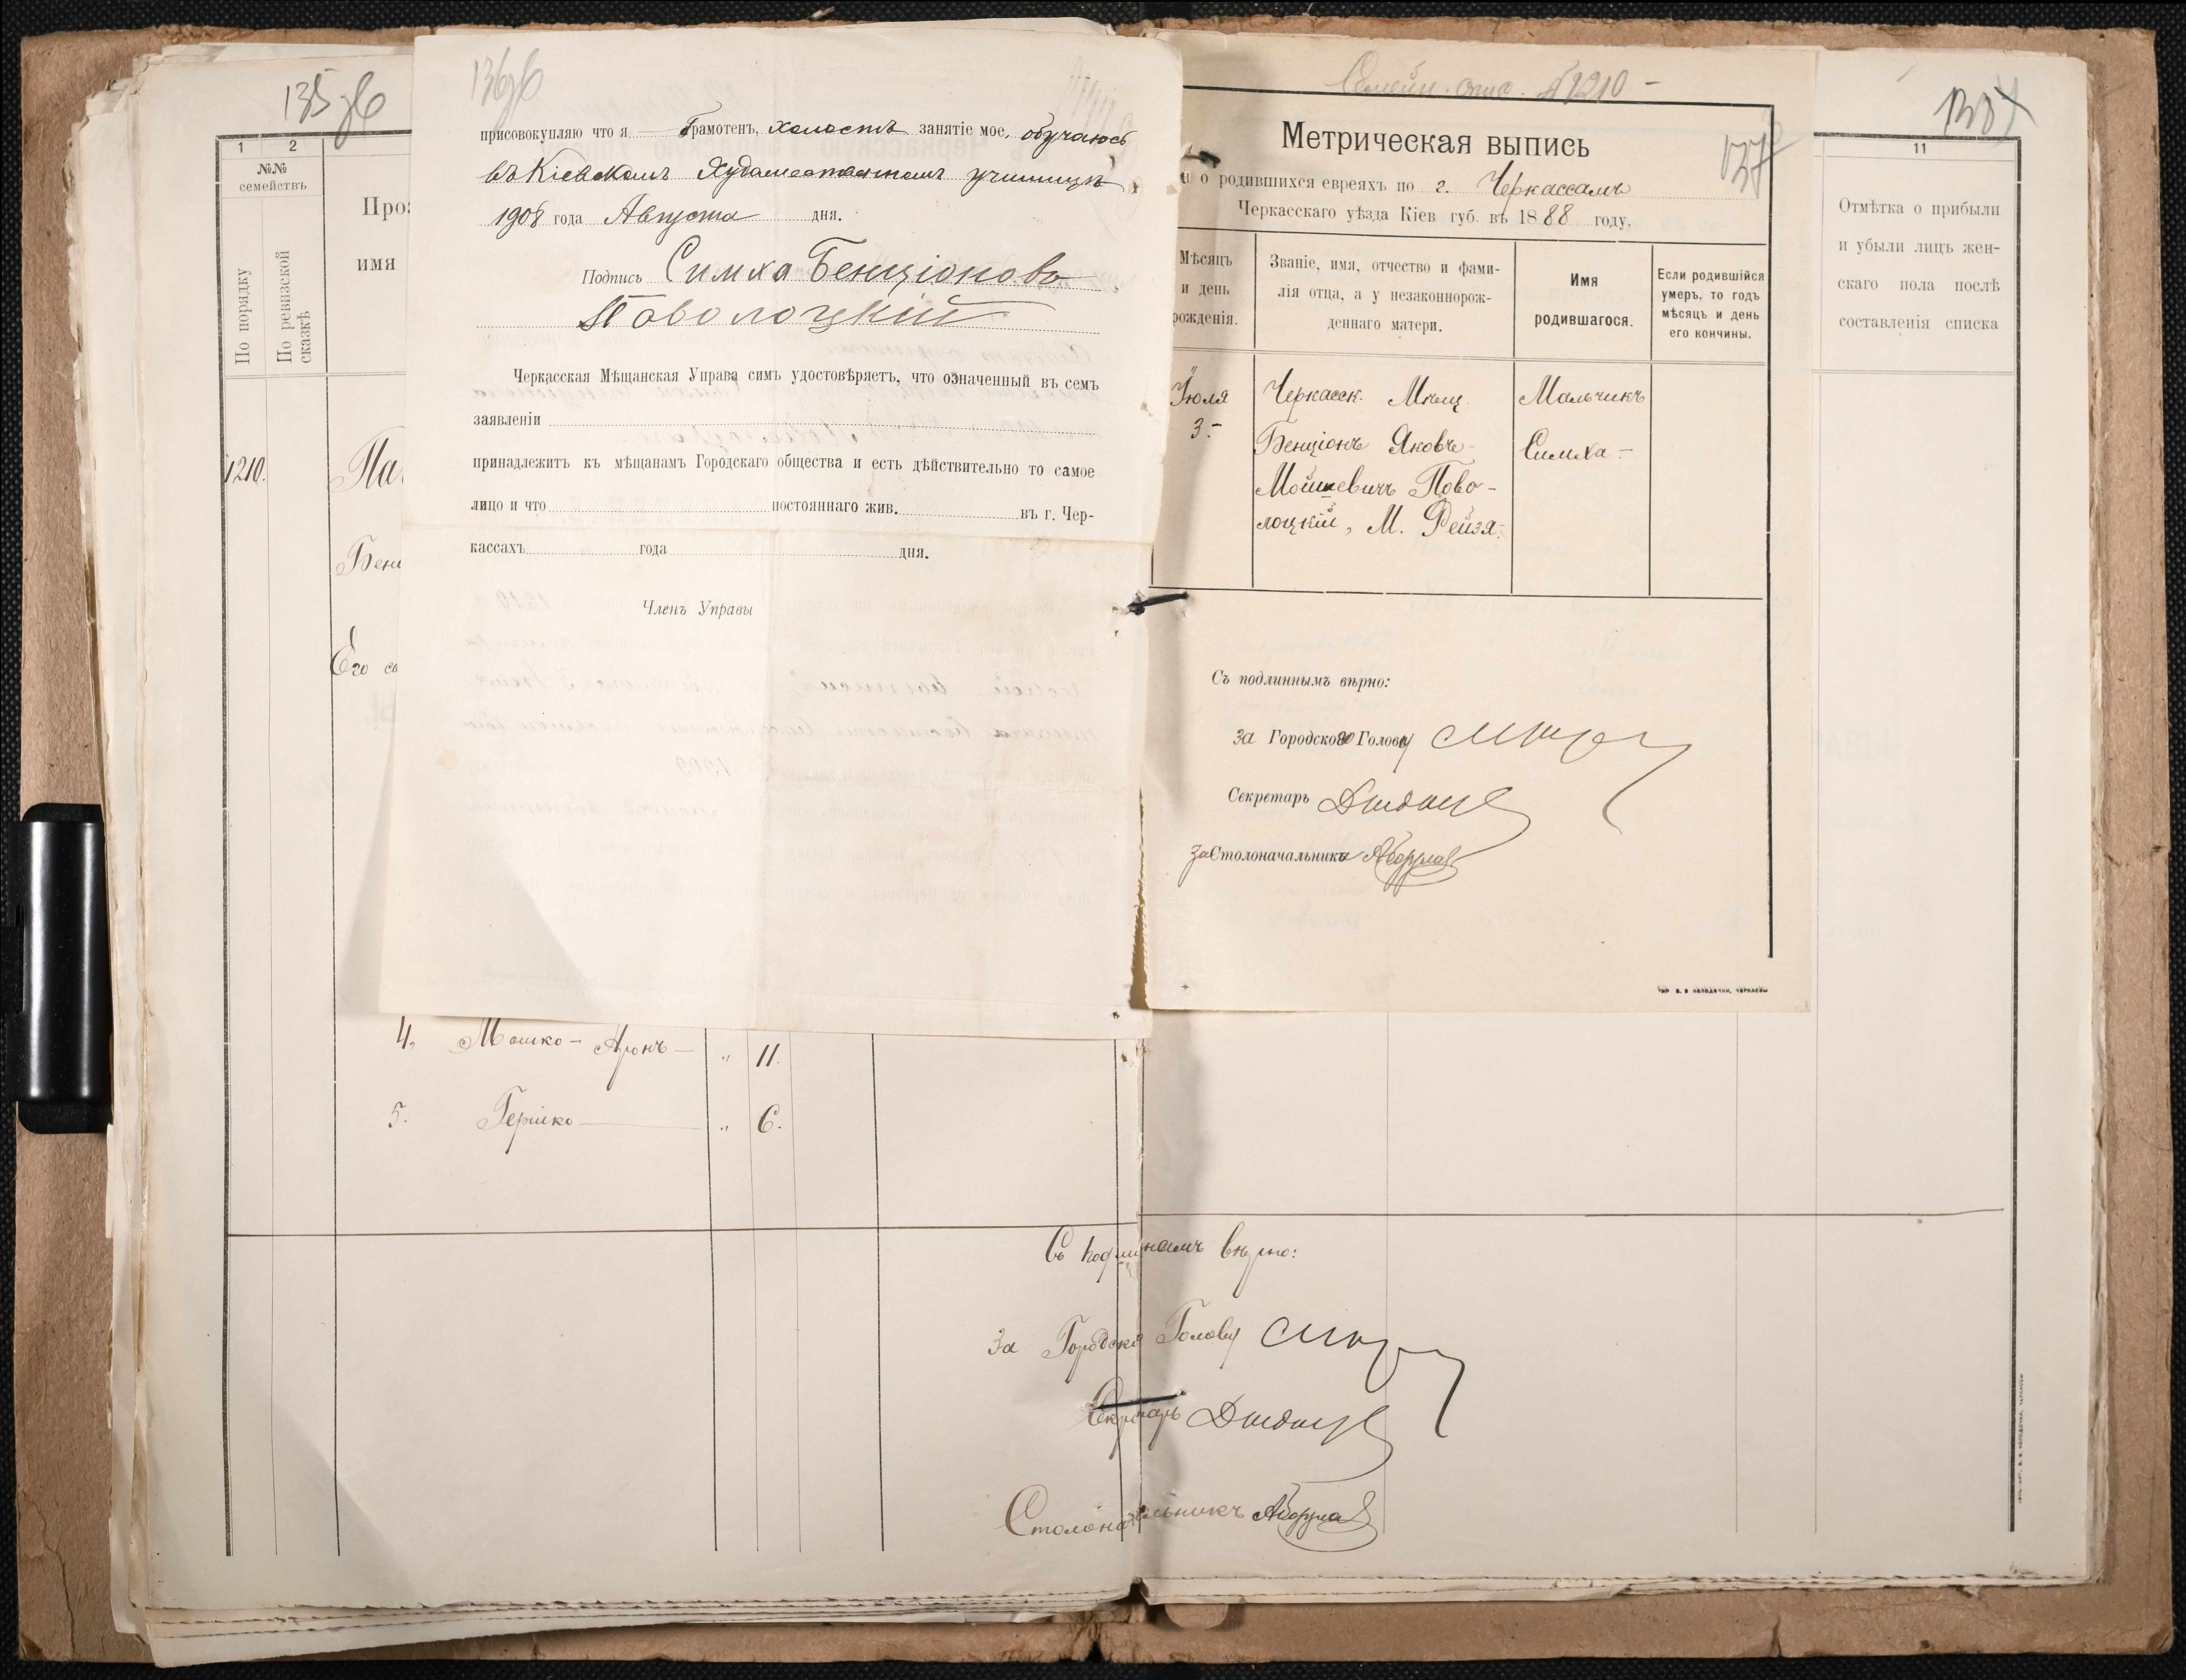 135об
1 2
№№
семействъ
По порядку
По ревизской
сказкѣ
Про
имя
1210.
Бен
Его с
136об
присовокупляю что я грамотенъ, холостъ занятіе мое, обучаюсь
въ Кіевскомъ Художественномъ училищѣ
1908 года Августа дня.
Подпись Симха Бенціоновъ
Поволоцкій
Черкасская Мѣщанская Управа симъ удостовѣряетъ, что означенный въ семъ
заявленіи
принадлежитъ къ мѣщанамъ Городскаго общества и есть дѣйствительно то самое
лицо и что постояннаго жив. въ г. Чер-
кассахъ года дня.
Членъ Управы
Семейн. спис. №1210 -
Метрическая выпись
137
о родившихся евреяхъ по г. Черкассамъ
Черкасскаго уѣзда Кіев губ. въ 1888 году.
Мѣсяцъ
и день
рожденія.
Званіе, имя, отчество и фами-
лія отца, а у незаконнорож-
деннаго матери.
Имя
родившагося.
Если родившійся
умеръ, то годъ
мѣсяцъ и день
его кончины.
Іюля
3.-
Черкасск. Мѣщ.
Бенціонъ Яковъ-
Мошкевичъ Пово-
лоцкій, М. Фейзя.
Мальчикъ
Симха -
Съ подлиннымъ вѣрно:
За Городского Голову
Секретарь
За Столоначальника
11
Отмѣтка о прибыли
и убыли лицъ жен-
скаго пола послѣ
составленія списка
4. Мошко - Аронъ - " 11.
5. Гершко " 6.
Съ подлиннымъ вѣрно:
За Городско Голову
Секретарь
Столоначальникъ